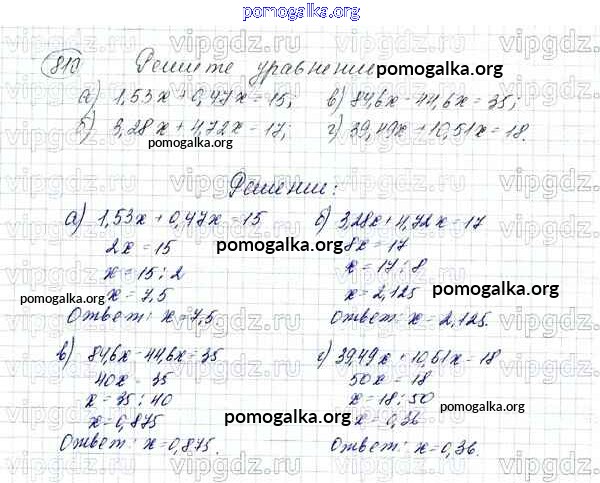 pomogalka.org
810 Решите уравнение pomogalka.org
а) 1,53x + 0,47x = 15; в) 84,6x - 44,6x = 35;
б) 3,28x + 4,72x = 17; г) 39,49x + 10,51x = 18.
pomogalka.org
Решении:
а) 1,53x + 0,47x = 15 б) 3,28x + 4,72x = 17
2x = 15 pomogalka.org 8x = 17
x = 15 : 2 x = 17 : 8
pomogalka.org x = 7,5 x = 2,125 pomogalka.org
Ответ: x = 7,5 Ответ: x = 2,125.
в) 84,6x - 44,6x = 35 г) 39,49x + 10,51x = 18
40x = 35 50x = 18
x = 35 : 40 x = 18 : 50 pomogalka.org
x = 0,875 pomogalka.org x = 0,36
Ответ: x = 0,875. Ответ: x = 0,36.
vipgdz.ru